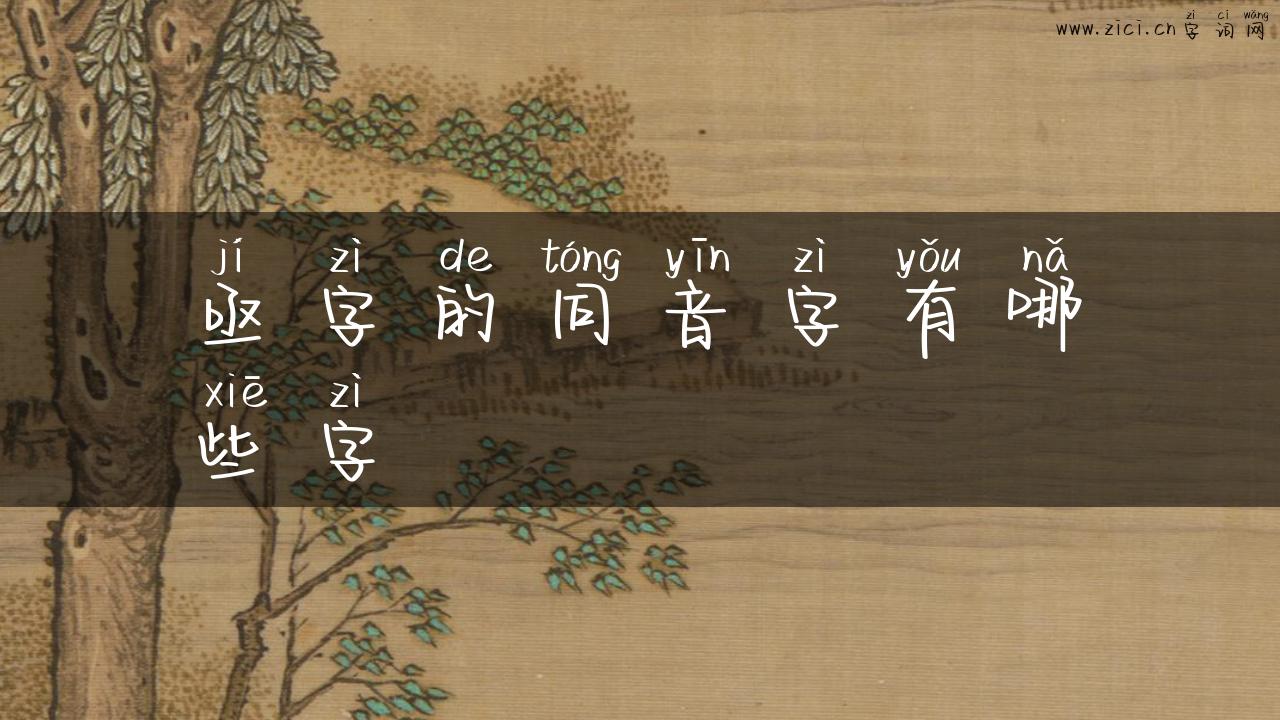 zì cí wǎng
www.zici.cn 字 词 网
jí zì de tóng yīn zì yǒu nǎ
亟 字 的 同 音 字 有 哪
xiē zì
些 字